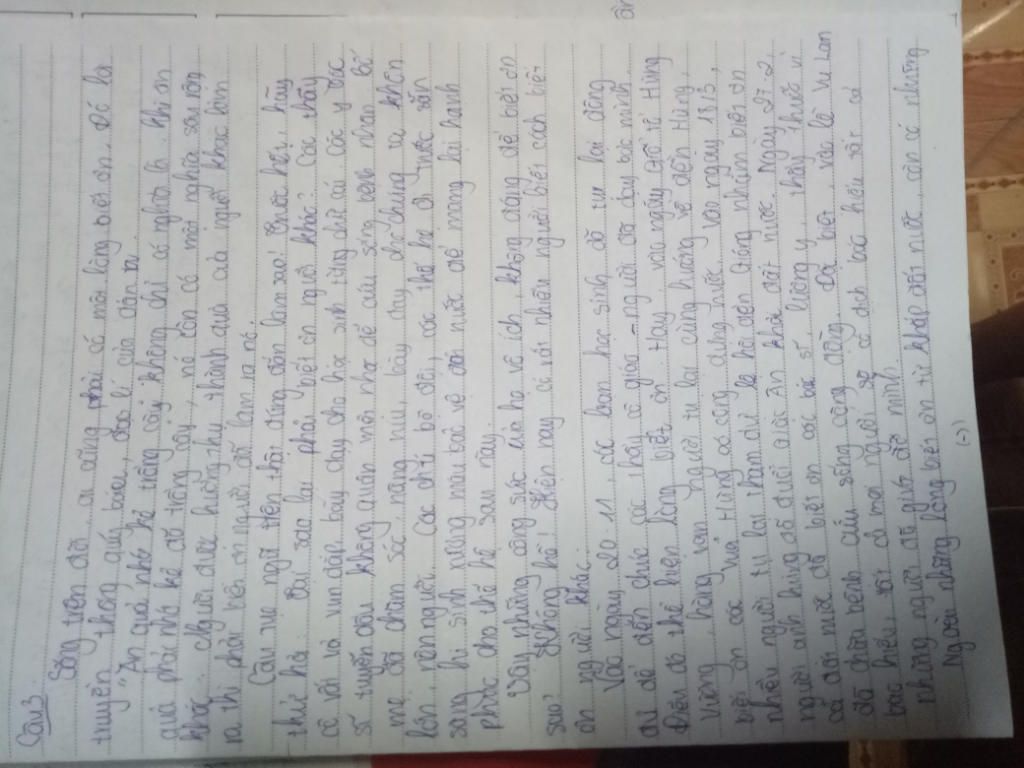 Câu 3
Sống trên đời, ai cũng phải có một lòng biết ơn. Đó là
truyền thống quý báu, đạo lí của dân ta.
"Ăn quả nhớ kẻ trồng cây" không chỉ có nghĩa là khi ăn
quả phải nhớ kẻ đã trồng cây, nó còn có một nghĩa sâu rộng
khác. Người được hưởng thụ thành quả của người khác làm
ra thì phải biết ơn người đã làm ra nó.
Câu tục ngữ trên thật đúng đắn làm sao! Trước hết, hãy
thử hỏi: Tại sao lại phải biết ơn người khác? Các thầy
cô vất vả vun đắp, bày dạy cho học sinh từng chữ cái. Các y bác
sĩ tuyến đầu không quản mệt nhọc để cứu sống bệnh nhân. Bố
mẹ đã chăm sóc, nâng niu, bày dạy cho chúng ta khôn
lớn, nên người. Các chú bộ đội, các thế hệ đi trước sẵn
sàng hi sinh xương máu bảo vệ đất nước để mang lại hạnh
phúc cho thế hệ sau này.
Vậy những công sức của họ vô ích, không đáng để biết ơn
sao? Không hề! Hiện nay có rất nhiều người biết cách biết
ơn người khác.
Vào ngày 20-11, các bạn học sinh đã tụ lại đông
đủ để đến chúc các thầy cô giáo - người đã dạy bọc mình.
Điều đó thể hiện lòng biết ơn. Hay vào ngày Giỗ tổ Hùng
Vương, hàng vạn người tụ lại cùng hướng về đền Hùng,
biết ơn các vua Hùng có công dựng nước. Vào ngày 18/3,
nhiều người tụ lại tham dự lễ hội đền Gióng nhằm biết ơn
người anh hùng đã đuổi giặc Ân khỏi đất nước. Ngày 27-2,
cả nước đã biết ơn các bác sĩ, lương y, thầy thuốc vì
đã chữa bệnh cứu sống cộng đồng. Đặc biệt, vào lễ Vu Lan
báo hiếu, tất cả mọi người sẽ có dịp báo hiếu tất cả
những người đã giúp đỡ mình.
Ngoài những lòng biết ơn từ khắp đất nước, còn có những
(→)